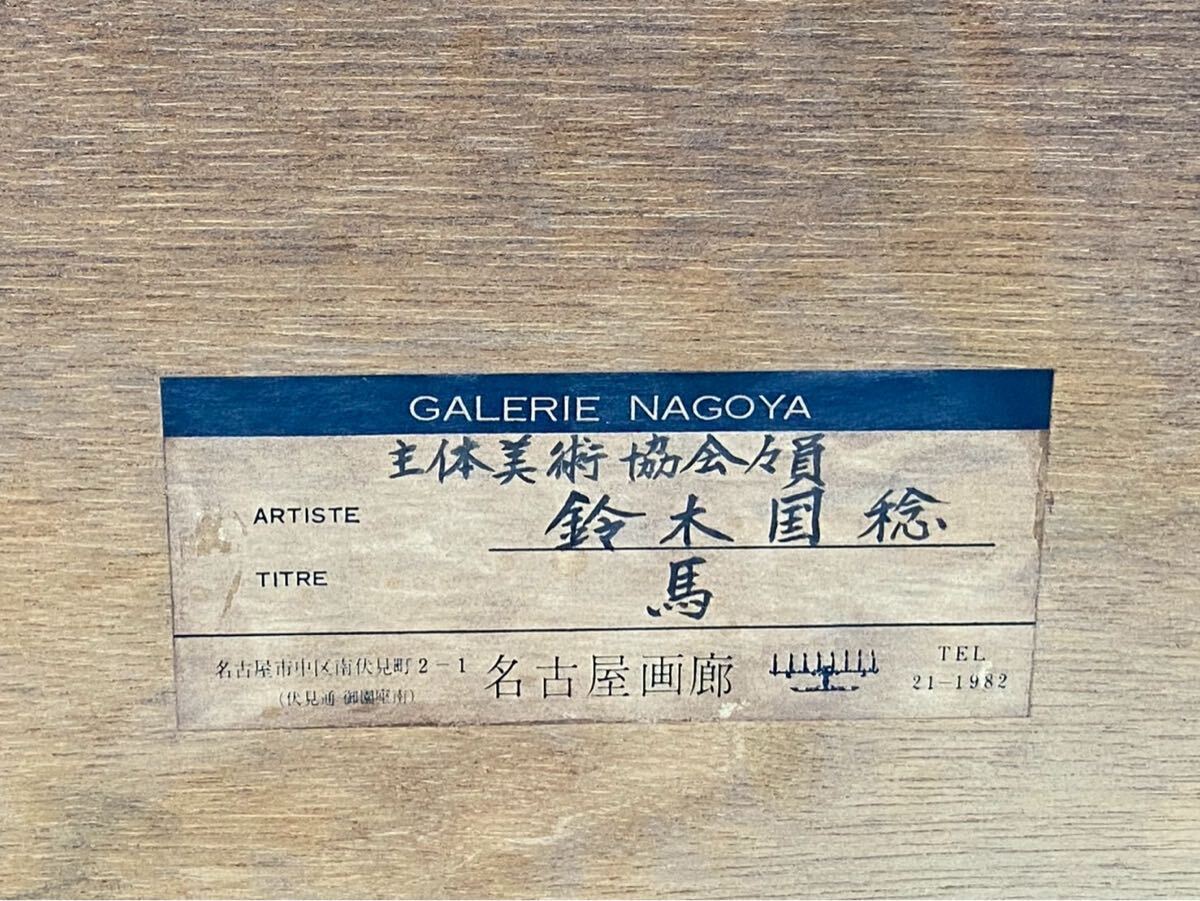 GALERIE NAGOYA
主体美術協会々員
ARTISTE 鈴木国稔
TITRE 馬
名古屋市中区南伏見町2-1
(伏見通 御園座南)
名古屋画廊
TEL
21-1982